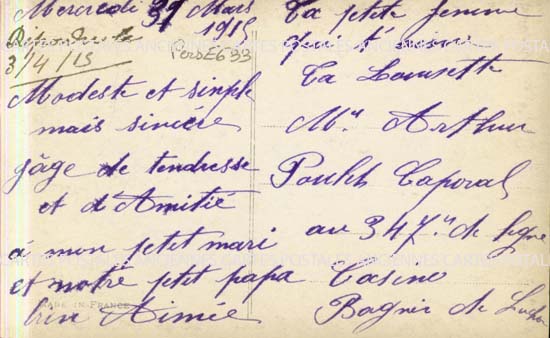 Mercredi 31 Mars
1915
Répondu le
3/4/15
PersE633
Modeste et simple
mais sincère
gâge de tendresse
et d'Amitié
à mon petit mari
et notre petit papa
bien Aimée
MADE IN FRANCE
Ta petite femme
qui t'
Ta Lousette
Mr Arthur
Caporal
au 347e de ligne
Casino
Bagnèr de Luchon